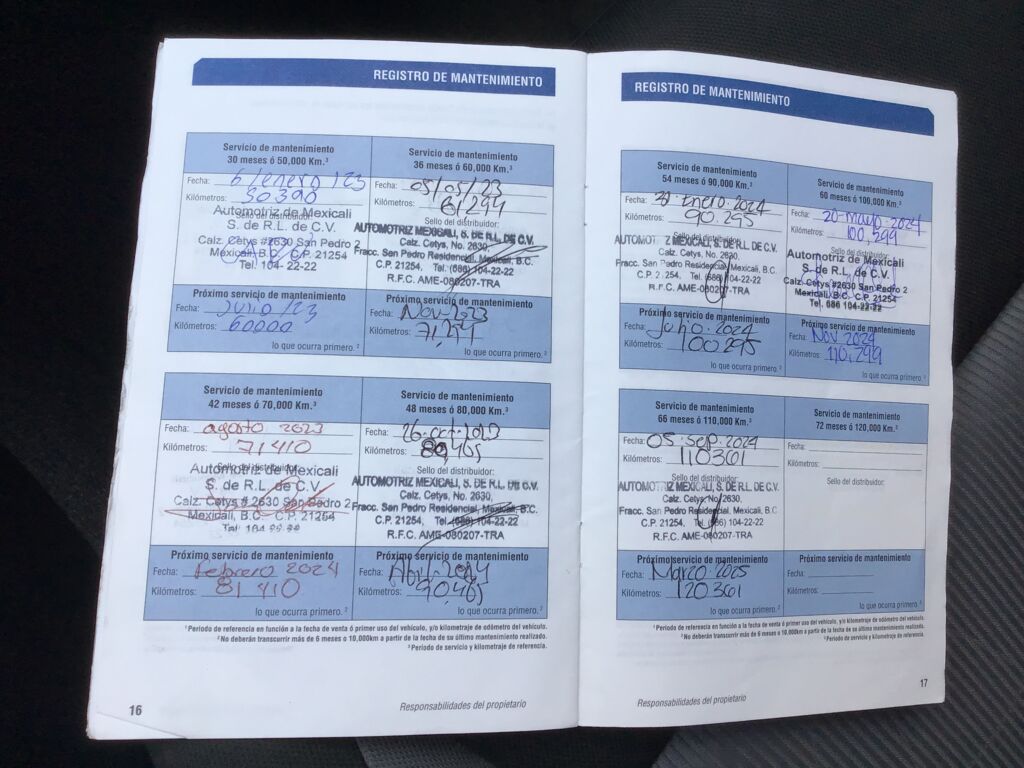 REGISTRO DE MANTENIMIENTO
Servicio de mantenimiento
30 meses ó 50,000 Km.³
Fecha: 6/enero/23
Kilómetros: 50390
Sello del distribuidor:
Automotriz de Mexicali
S. de R.L. de C.V.
Calz. Cetys #2630 San Pedro 2
Mexicali, B.C. C.P. 21254
Tel. 104-22-22
Próximo servicio de mantenimiento
Fecha: Julio /23
Kilómetros: 60000
lo que ocurra primero. ²
Servicio de mantenimiento
36 meses ó 60,000 Km.³
Fecha: 05/05/23
Kilómetros: 61,294
AUTOMOTRIZ MEXICALI, S. DE R.L. DE C.V.
Calz. Cetys, No. 2630,
Fracc. San Pedro Residencial, Mexicali, B.C.
C.P. 21254, Tel. (686) 104-22-22
R.F.C. AME-080207-TRA
Próximo servicio de mantenimiento
Fecha: Nov-2023
Kilómetros: 71,294
lo que ocurra primero. ²
Servicio de mantenimiento
42 meses ó 70,000 Km.³
Fecha: agosto 2023
Kilómetros: 71410
Sello del distribuidor:
Automotriz de Mexicali
S. de R.L. de C.V.
Calz. Cetys # 2630 San Pedro 2
Mexicali, B.C. C.P. 21254
Tel. 104-22-22
Próximo servicio de mantenimiento
Fecha: Febrero 2024
Kilómetros: 81410
lo que ocurra primero. ²
Servicio de mantenimiento
48 meses ó 80,000 Km.³
Fecha: 26-oct-2023
Kilómetros: 80,465
Sello del distribuidor:
AUTOMOTRIZ MEXICALI, S. DE R.L. DE C.V.
Calz. Cetys, No. 2630,
Fracc. San Pedro Residencial, Mexicali, B.C.
C.P. 21254, Tel. (686) 104-22-22
R.F.C. AME-080207-TRA
Próximo servicio de mantenimiento
Fecha: Abril-2024
Kilómetros: 90,465
lo que ocurra primero. ²
¹ Periodo de referencia en función a la fecha de venta ó primer uso del vehículo, y/o kilometraje de odómetro del vehículo.
² No deberán transcurrir más de 6 meses o 10,000km a partir de la fecha de su último mantenimiento realizado.
³ Periodo de servicio y kilometraje de referencia.
16
Responsabilidades del propietario
REGISTRO DE MANTENIMIENTO
Servicio de mantenimiento
54 meses ó 90,000 Km.³
Fecha: Enero 2024
Kilómetros: 90.295
Sello del distribuidor:
AUTOMOTRIZ MEXICALI, S. DE R.L. DE C.V.
Calz. Cetys, No. 2630,
Fracc. San Pedro Residencial, Mexicali, B.C.
C.P. 21254, Tel. (686) 104-22-22
R.F.C. AME-080207-TRA
Próximo servicio de mantenimiento
Fecha: Julio. 2024
Kilómetros: 100.295
lo que ocurra primero. ²
Servicio de mantenimiento
60 meses ó 100,000 Km.³
Fecha: 20-mayo-2024
Kilómetros: 100,299
Sello del distribuidor:
Automotriz de Mexicali
S. de R.L. de C.V.
Calz. Cetys #2630 San Pedro 2
Mexicali, B.C. C.P. 21254
Tel. 686 104-22-22
Próximo servicio de mantenimiento
Fecha: Nov 2024
Kilómetros: 110,299
lo que ocurra primero. ²
Servicio de mantenimiento
66 meses ó 110,000 Km.³
Fecha: 05. sep. 2024
Kilómetros: 110361
Sello del distribuidor:
AUTOMOTRIZ MEXICALI, S. DE R.L. DE C.V.
Calz. Cetys, No. 2630,
Fracc. San Pedro Residencial, Mexicali, B.C
C.P. 21254, Tel. (686) 104-22-22
R.F.C. AME-080207-TRA
Próximo servicio de mantenimiento
Fecha: Marzo. 2025
Kilómetros: 120.361
lo que ocurra primero. ²
Servicio de mantenimiento
72 meses ó 120,000 Km.³
Fecha:
Kilómetros:
Sello del distribuidor:
Próximo servicio de mantenimiento
Fecha:
Kilómetros:
lo que ocurra primero. ²
¹ Periodo de referencia en función a la fecha de venta ó primer uso del vehículo, y/o kilometraje de odómetro del vehículo.
² No deberán transcurrir más de 6 meses o 10,000km a partir de la fecha de su último mantenimiento realizado.
³ Periodo de servicio y kilometraje de referencia.
Responsabilidades del propietario
17